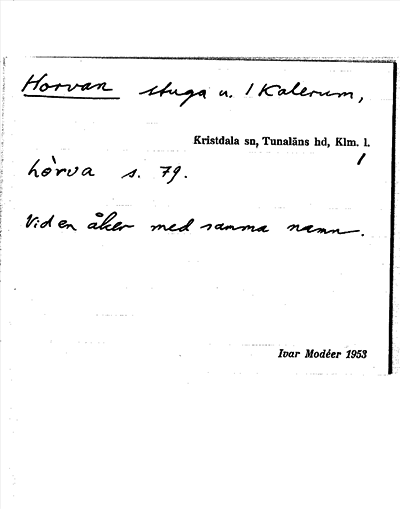 Horvan stuga u. 1 Kalerum,
Kristdala sn, Tunaläns hd, Klm. l.
hòrva s. 79.
Vid en åker med samma namn.
Ivar Modéer 1953